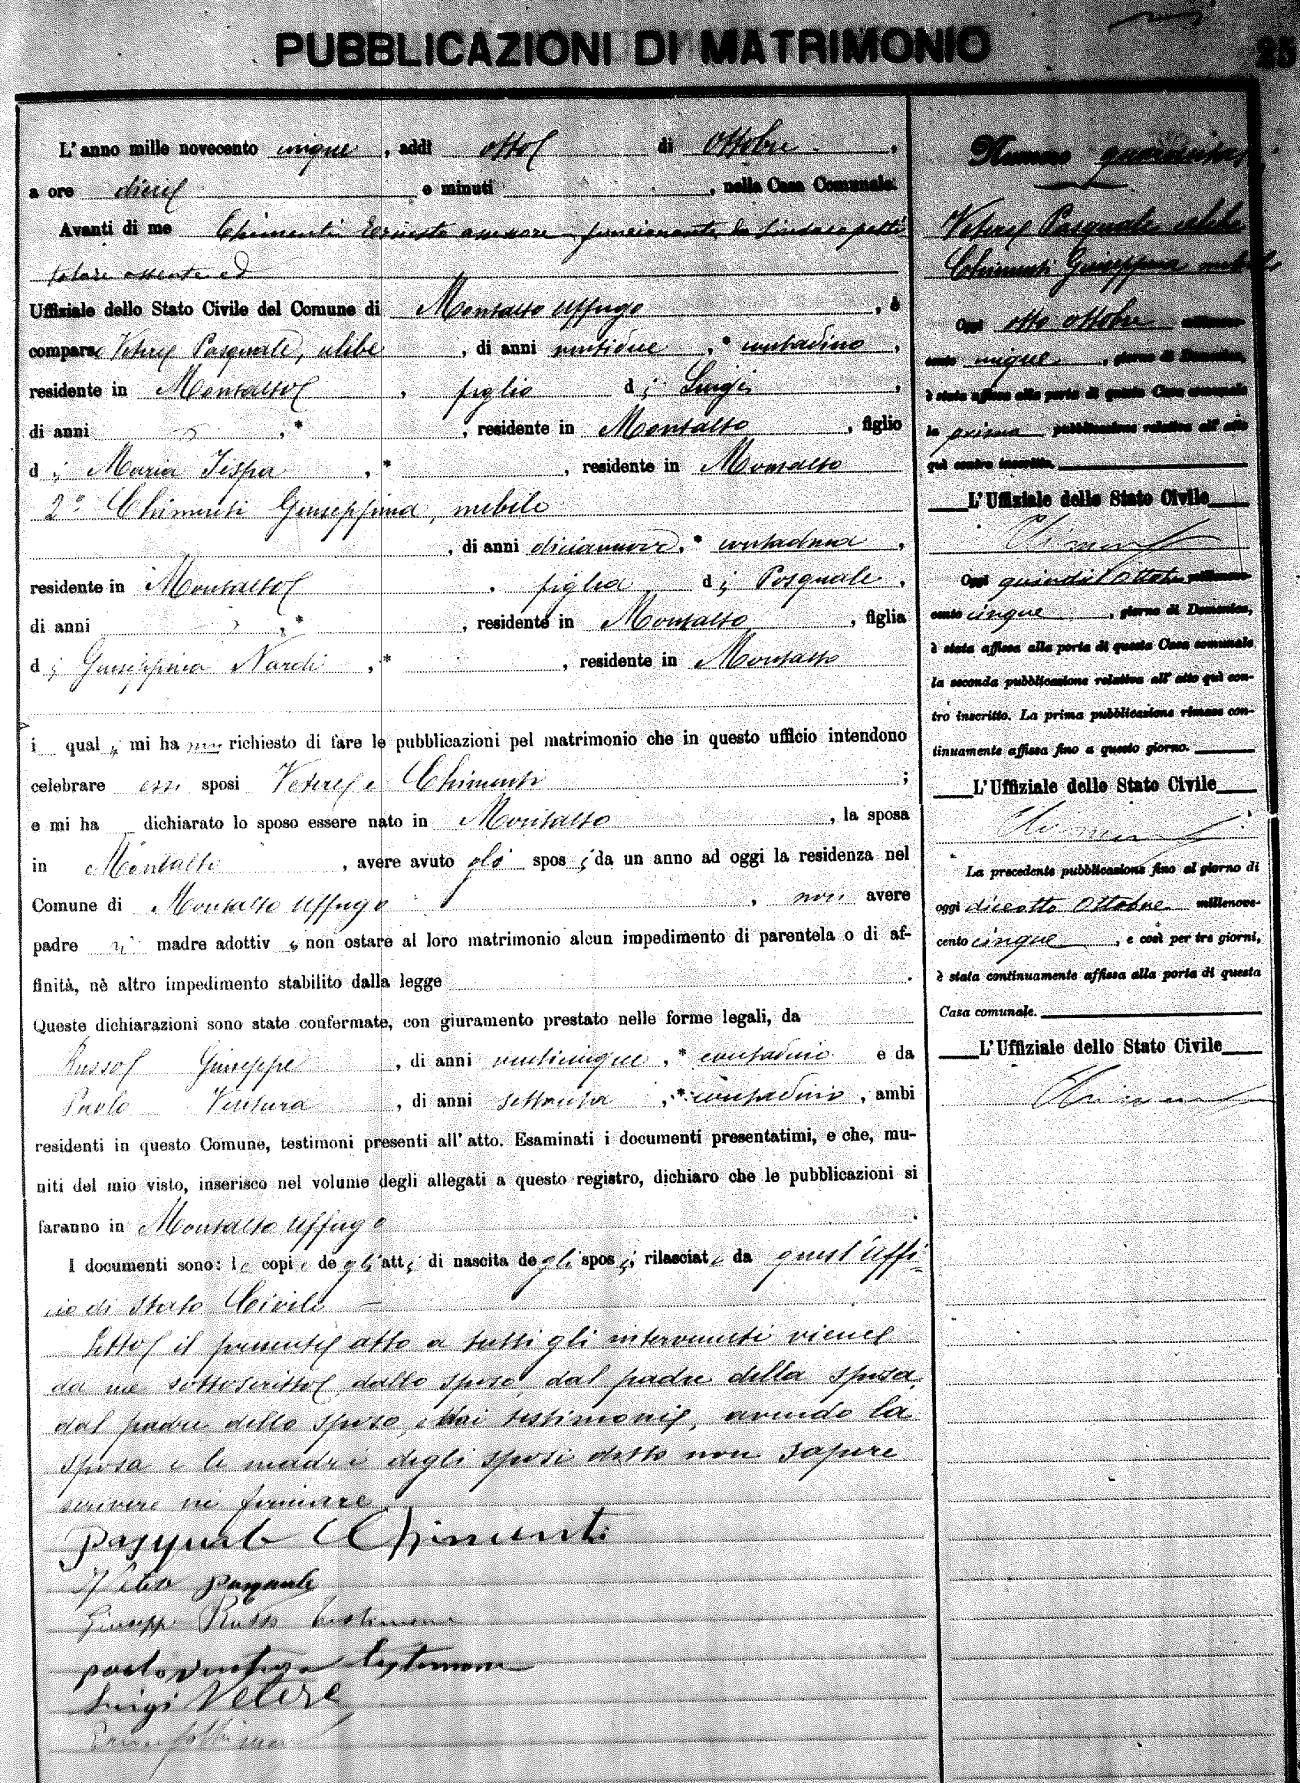 PUBBLICAZIONI DI MATRIMONIO
25
L'anno mille novecento cinque, addì otto di Ottobre,
a ore dieci e minuti , nella Casa Comunale.
Avanti di me Chimenti Ernesto assessore funzionante da Sindaco pel ti
tolare assente ed
Uffiziale dello Stato Civile del Comune di Montalto Uffugo, è
compars Vetere Pasquale, celibe, di anni ventidue, * contadino,
residente in Montalto, figlio di Luigi,
di anni , * , residente in Montalto, figlio
di Maria , * , residente in Montalto
2° Chimenti Giuseppina, nubile
, di anni diciannove, * contadina,
residente in Montalto, figlia di Pasquale,
di anni , * , residente in Montalto, figlia
di Giuseppina Nardi, * , residente in Montalto
i quali mi ha nno richiesto di fare le pubblicazioni pel matrimonio che in questo ufficio intendono
celebrare essi sposi Vetere e Chimenti ;
e mi ha dichiarato lo sposo essere nato in Montalto, la sposa
in Montalto, avere avuto gli sposi da un anno ad oggi la residenza nel
Comune di Montalto Uffugo, non avere
padre nè madre adottivi, non ostare al loro matrimonio alcun impedimento di parentela o di af-
finità, nè altro impedimento stabilito dalla legge .
Queste dichiarazioni sono state confermate, con giuramento prestato nelle forme legali, da
Russo Giuseppe, di anni venticinque, * contadino e da
Paolo Ventura, di anni settanta, * contadino, ambi
residenti in questo Comune, testimoni presenti all'atto. Esaminati i documenti presentatimi, e che, mu-
niti del mio visto, inserisco nel volume degli allegati a questo registro, dichiaro che le pubblicazioni si
faranno in Montalto Uffugo .
I documenti sono: le copie degli atti di nascita degli sposi, rilasciate da quest'Uffi-
cio di Stato Civile
Letto il presente atto a tutti gli intervenuti viene
da me sottoscritto, dallo sposo, dal padre della sposa,
dal padre dello sposo, e dai testimoni, avendo la
sposa e le madri degli sposi detto non sapere
scrivere nè firmare.
Pasquale Chimenti
Vetere Pasquale
Giuseppe Russo testimone
paolo ventura testimone
Luigi Vetere
Numero
Vetere Pasquale celibe
Chimenti Giuseppina nubile
Oggi otto ottobre millenove-
cento cinque, giorno di Domenica,
è stata affissa alla porta di questa Casa comunale
la prima pubblicazione relativa all'atto
quì contro inscritto.
L'Uffiziale dello Stato Civile
Chimenti
Oggi quindici Ottobre millenove-
cento cinque, giorno di Domenica,
è stata affissa alla porta di questa Casa comunale
la seconda pubblicazione relativa all'atto quì con-
tro inscritto. La prima pubblicazione rimase con-
tinuamente affissa fino a questo giorno.
L'Uffiziale dello Stato Civile
Chimenti
La precedente pubblicazione fino al giorno di
oggi diciotto Ottobre millenove-
cento cinque, e così per tre giorni,
è stata continuamente affissa alla porta di questa
Casa comunale.
L'Uffiziale dello Stato Civile
Chimenti